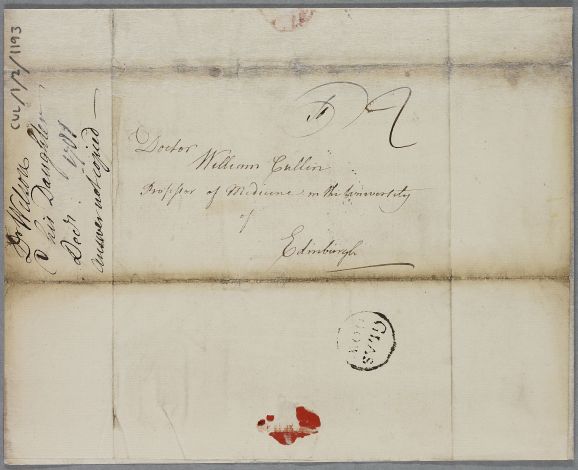 Doctor
William Cullin
Professor of Medicine in the University
of
Edinburgh
GLAS
GOW
CUL/1/2/1193
Dr Wilson
his Daughter
Decr. 1781
Answer not copied